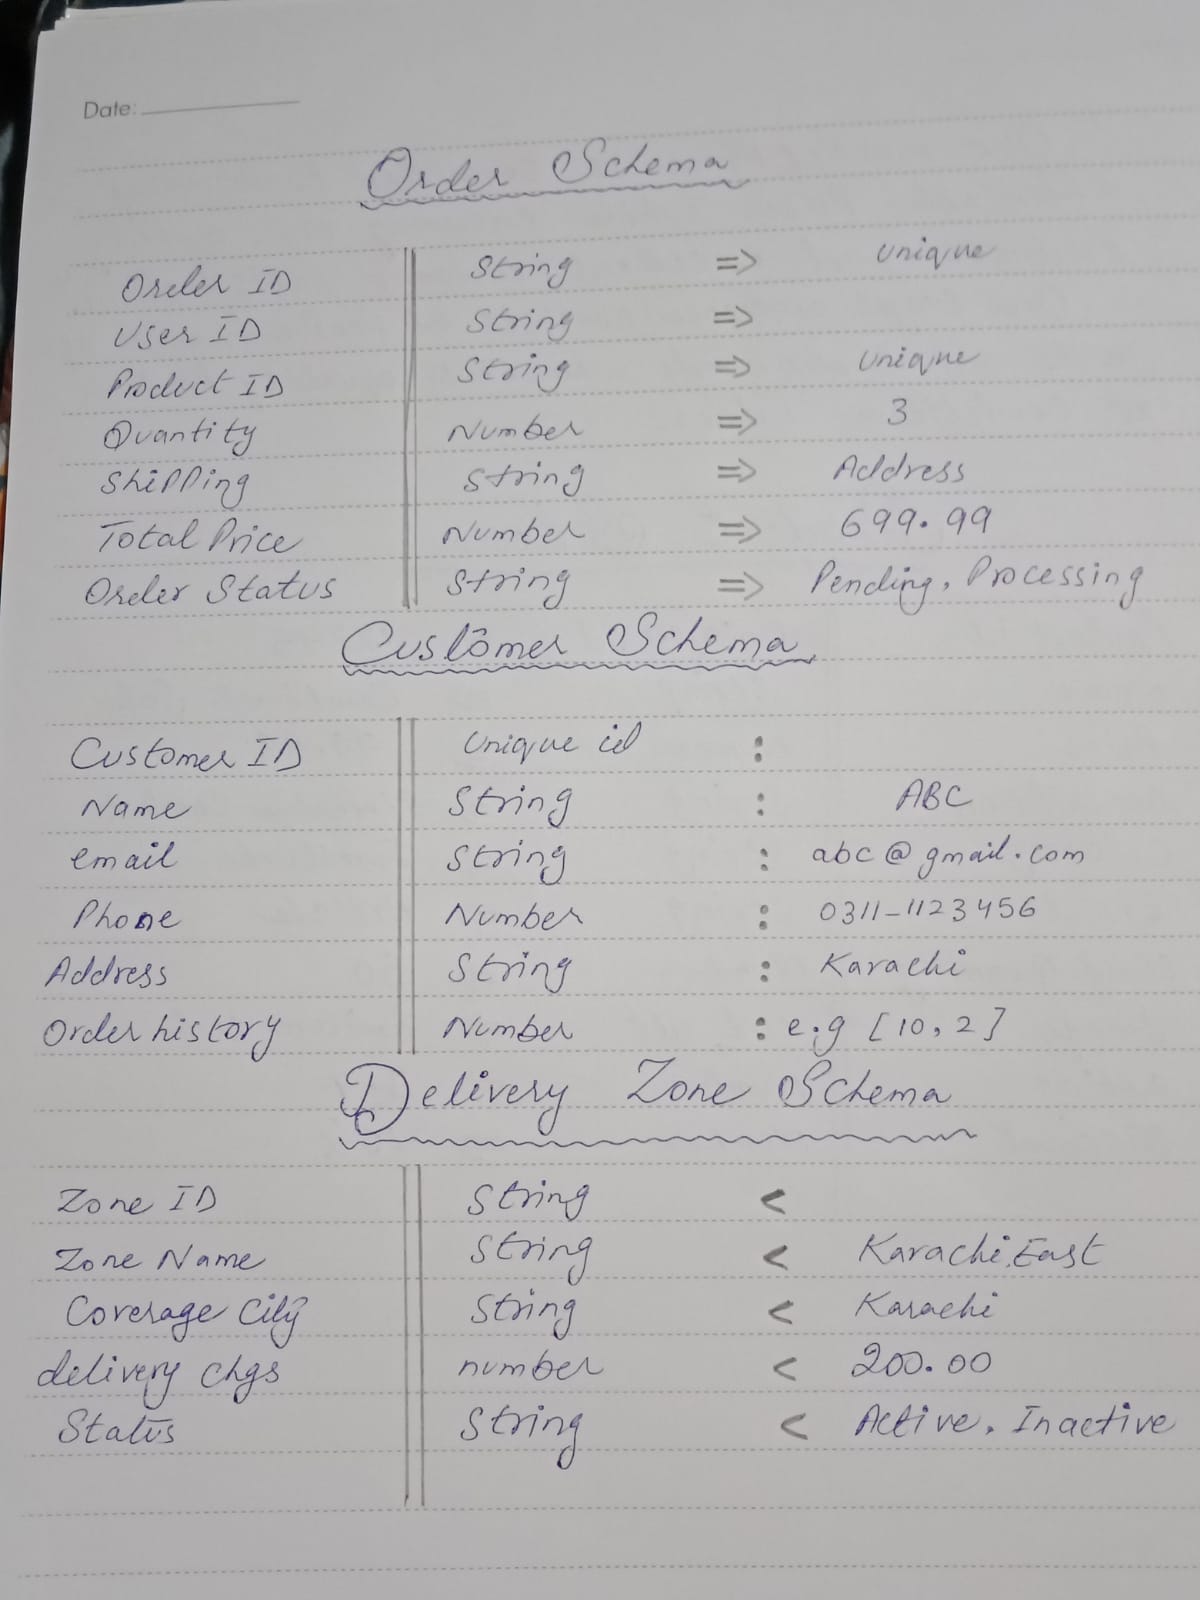 Date:
Order Schema
Order ID String => unique
User ID String =>
Product ID String => unique
Quantity Number => 3
Shipping String => Address
Total Price Number => 699.99
Order Status String => Pending, Processing
Customer Schema
Customer ID Unique id :
Name String : ABC
email String : abc@gmail.com
Phone Number : 0311-1123456
Address String : Karachi
Order history Number : e.g [10, 2]
Delivery Zone Schema
Zone ID String <
Zone Name String < Karachi, East
Coverage City String < Karachi
delivery chgs number < 200.00
Status String < Active, Inactive